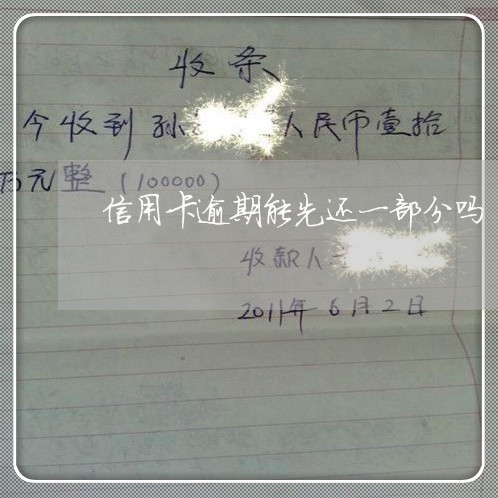 收条
今收到孙 人民币壹拾
万元整(100000)
信用卡逾期能先还一部分吗
收款人
2011年6月2日